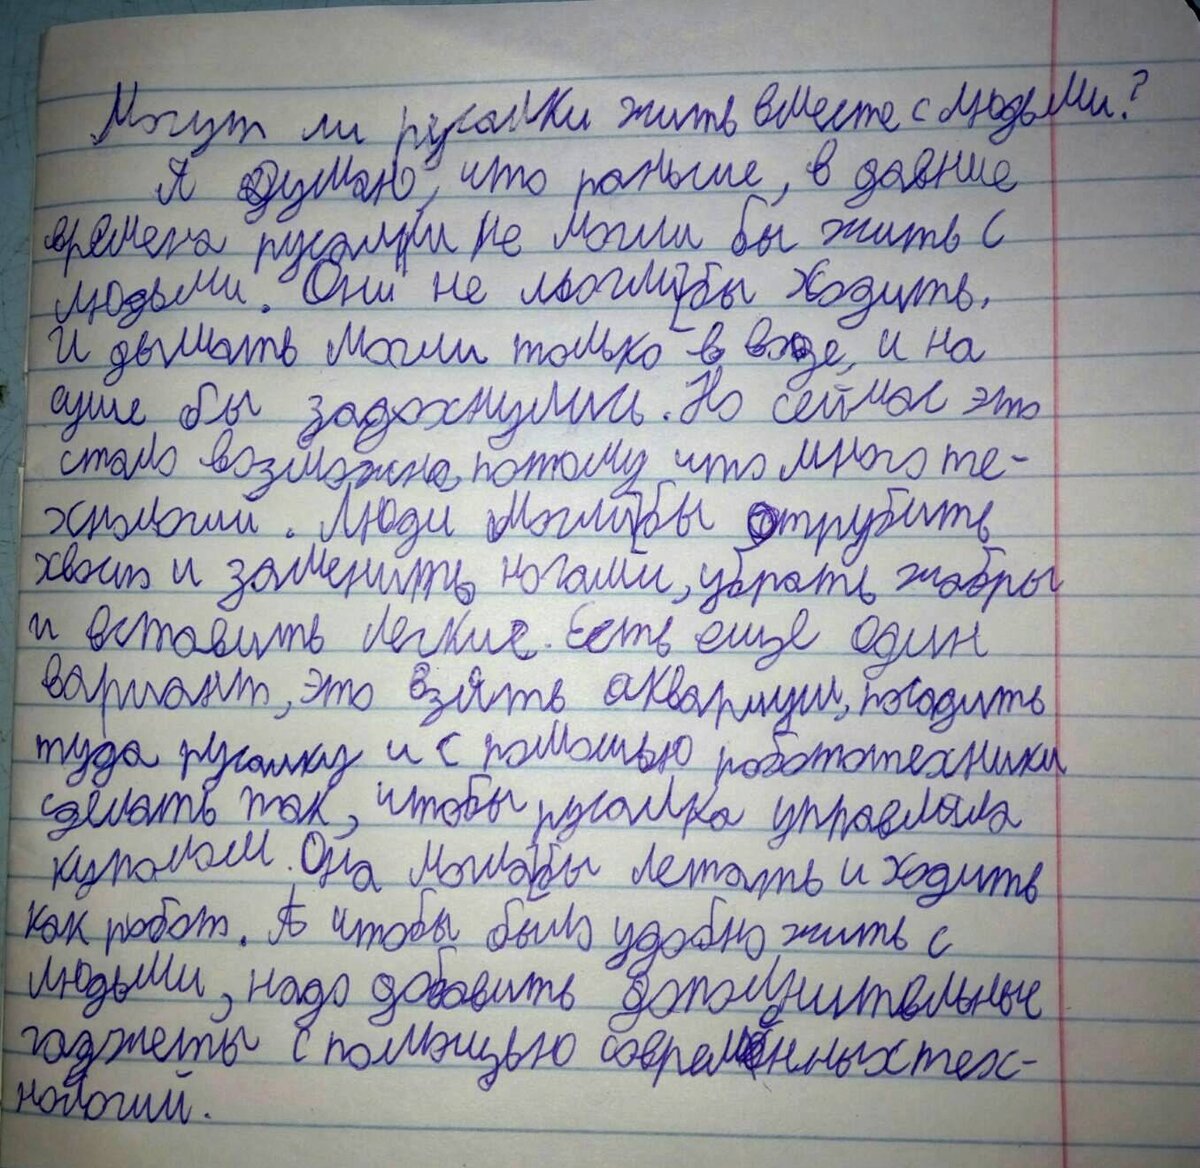 Могут ли русалки жить вместе с людьми?
Я думаю, что раньше, в давние
времена русалки не могли бы жить с
людьми. Они не могли бы ходить,
и дышать могли только в воде, и на
суше бы задохнулись. Но сейчас это
стало возможно, потому что много те-
хнологии. Люди могли бы отрубить
хвост и заменить ногами, убрать жабры
и вставить легкие. Есть еще один
вариант, это взять аквариум, посадить
туда русалку и с помощью робототехники
сделать так, чтобы русалка управляла
куполом. Она могла бы летать и ходить
как робот. А чтобы было удобно жить с
людьми, надо добавить дополнительные
гаджеты с помощью современных тех-
нологий.